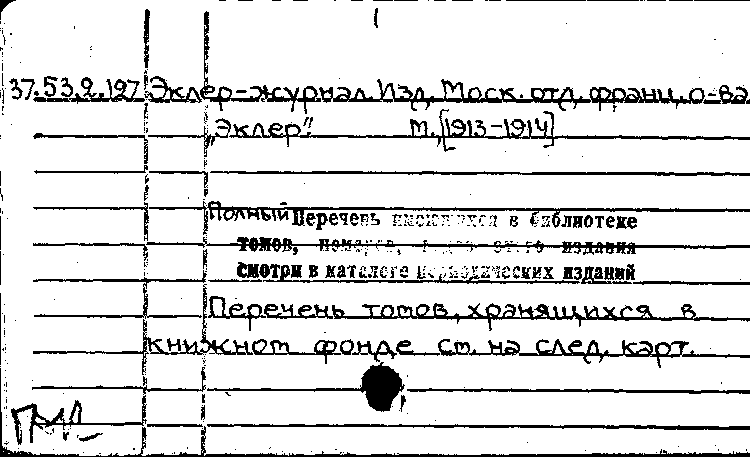 37.53.2.127 Эклер-журнал. Изд. Моск. отд. франц. о-ва
„Эклер". М., [1913-1914]
Полный Перечень имеющихся в библиотеке
томов, номеров, издания
смотри в каталоге периодических изданий
Перечень томов, хранящихся в
книжном фонде см. на след. карт.